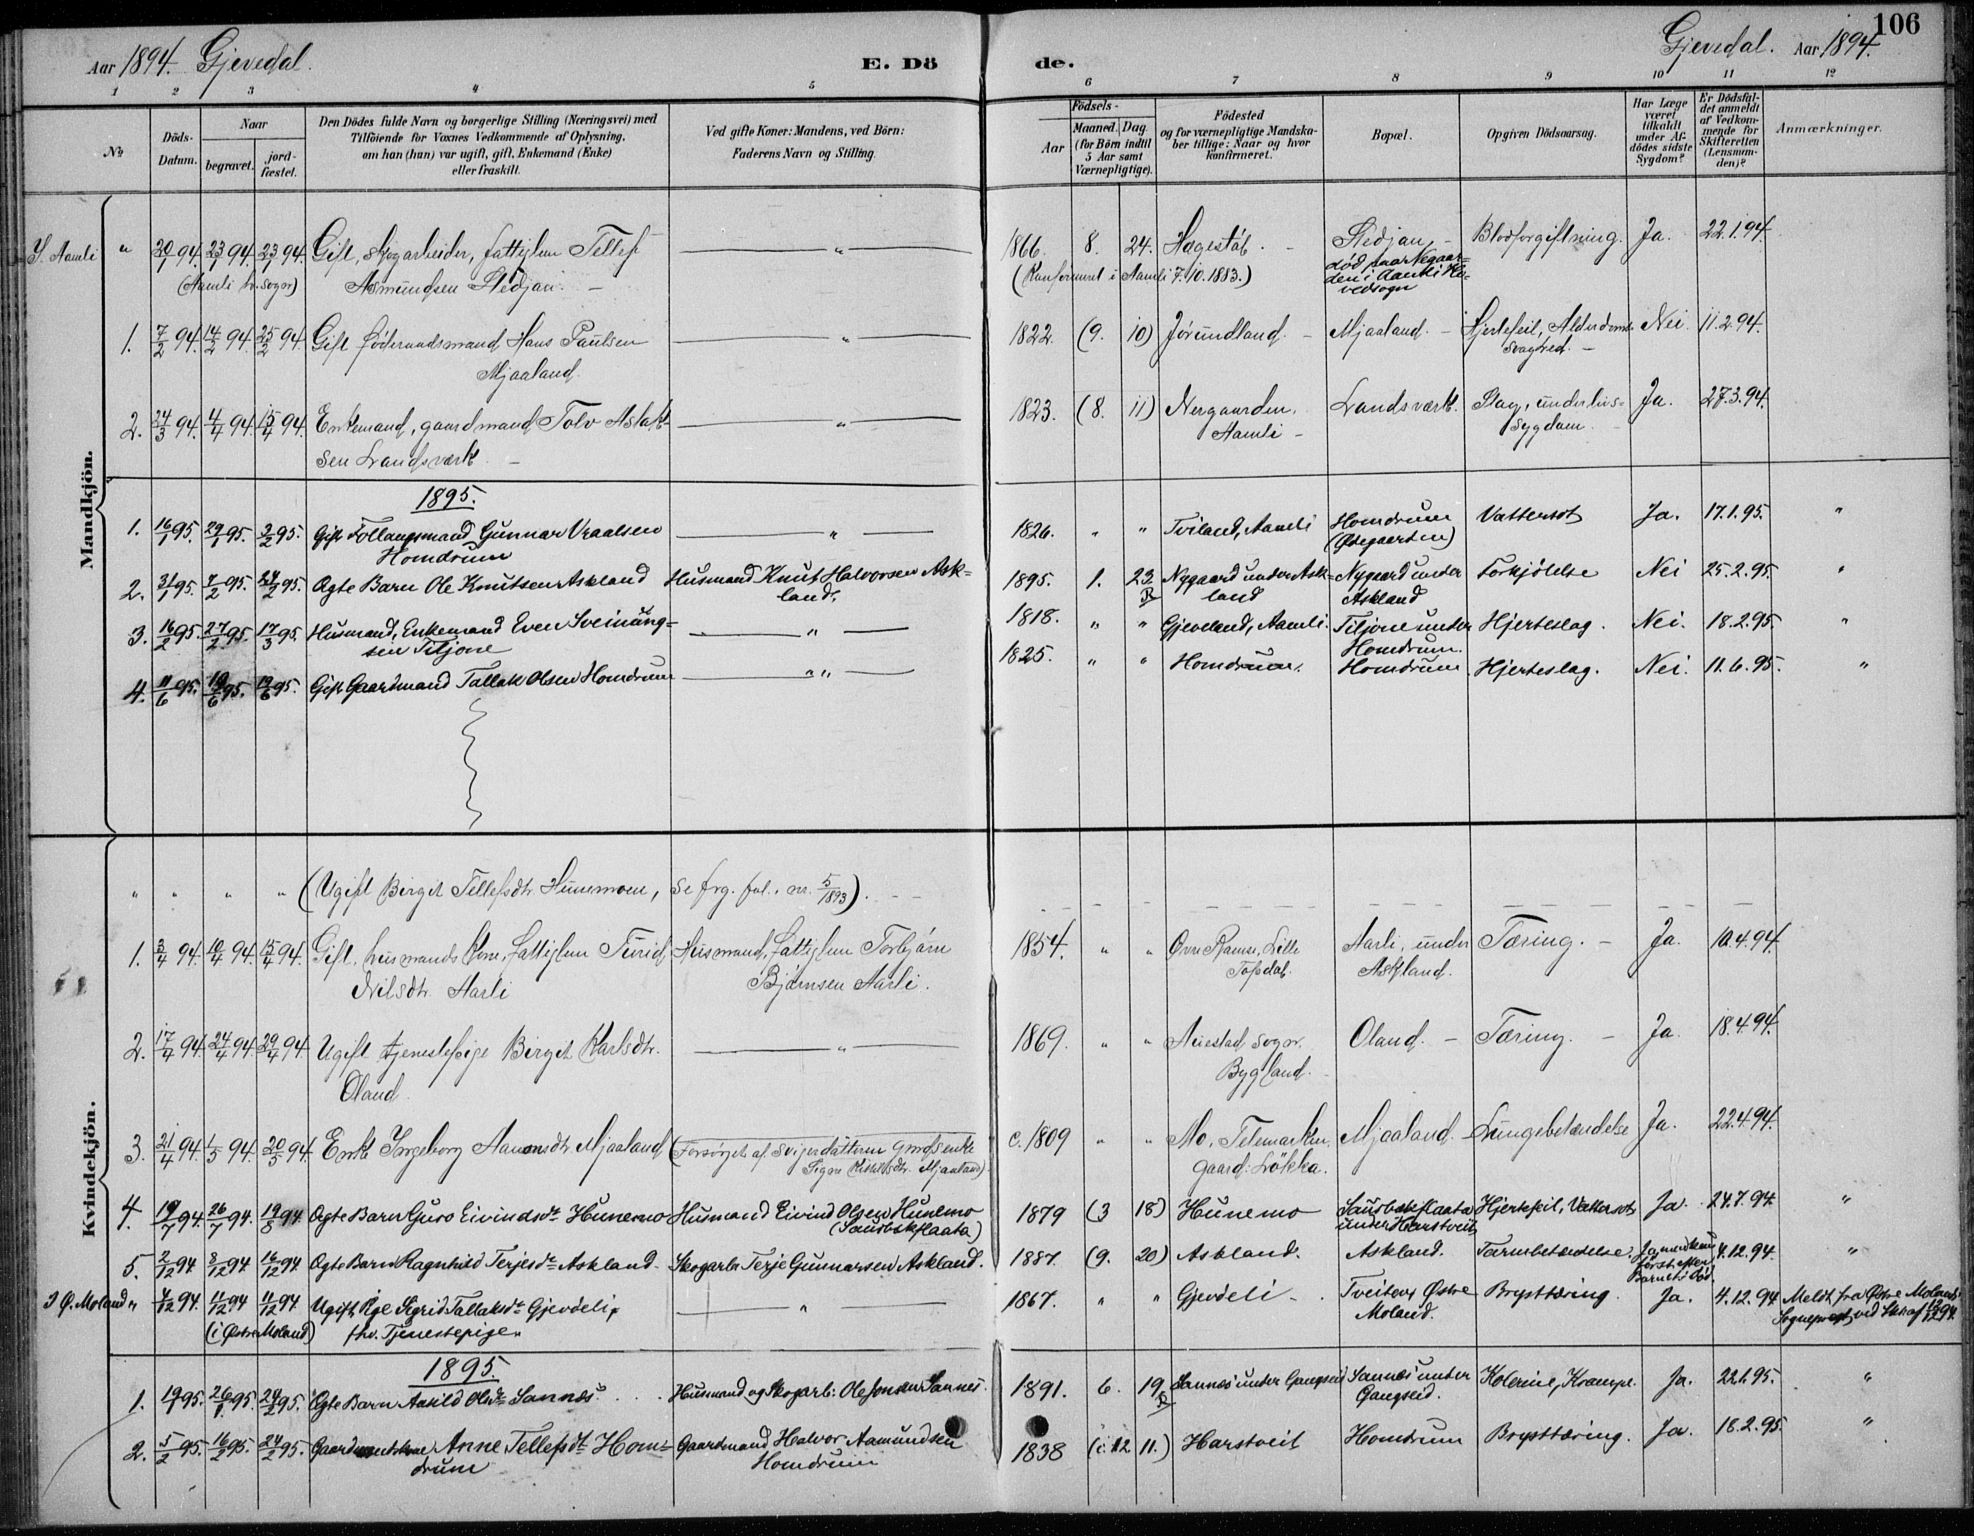 106
Aar 1894. Gjevedal. E. Dö
de. Gjevedal. Aar 1894.
1 2 3 4 5 6 7 8 9 10 11 12
No
Döds-Datum.
Naar
begravet.
jord-fæstet.
Den Dödes fulde Navn og borgerlige Stilling (Næringsvei) med
Tilföiende for Voxnes Vedkommende af Oplysning,
om han (hun) var ugift, gift, Enkemand (Enke)
eller fraskilt.
Ved gifte Koner: Mandens, ved Börn:
Faderens Navn og Stilling.
Födsels-
Aar
Maaned. Dag.
(for Börn indtil
5 Aar samt
Værnepligtige).
Födested
og for værnepligtige Mandska-
ber tillige: Naar og hvor
konfirmeret.
Bopæl.
Opgiven Dödsaarsag.
Har Læge
været
tilkaldt
under Af-
dödes sidste
Sygdom?
Er Dödsfal-
det anmeldt
af Vedkom-
mende for
Skifteretten
(Lensman-
den)?
Anmærkninger.
Mandkjön.
Y. Aamli " 20/1 94. 23/1 94. 23/1 94. Gift, Skogarbeider, fattiglem Tellef " 1866. 8. 24. Hægestøl. Stedjan, Blodforgiftning. Ja. 22.1.94.
(Aamli hr. sogn) Asmundsen Stedjan. (Konfirmeret i Aamli 7.10.1883.) død paa Negaar-
den i Aamli Ho-
vedsogn
1. 7/2 94. 14/2 94. 25/2 94. Gift föderaadsmand Hans Paulsen " 1822. (9. 10) Jørundland. Mjaaland. Hjertefeil, Alderdoms- Nei. 11.2.94.
Mjaaland. svaghed.
2. 24/3 94. 4/4 94. 15/4 94. Enkemand, gaardmand Tolv Aslak- " 1823. (8. 11) Nergaarden, Landsværk. Slag, underlivs- Ja. 27.3.94.
sen Landsværk. Aamli sygdom.
1895.
1. 16/1 95. 29/1 95. 3/2 95. Gift Follaugsmand Gunnar Vraalsen " 1826. " " Tviland, Aamli Homdrum Vattersot Ja. 17.1.95. "
Homdrum (Østegaarten)
2. 31/1 95. 7/2 95. 24/2 95. Ægte Barn Ole Knutsen Askland Husmand Knut Halvorsen Ask- 1895. 1. 23. Nygaard under Ask- Nygaard under Forkjölelse Nei 25.2.95. "
land. land Askland
3. 16/2 95. 27/2 95. 17/3 95. Husmand, Enkemand Even Sveinung- " 1818. " " Gjeveland, Aamli. Tiljone under Hjerteslag. Nei. 18.2.95. "
sen Tiljone Homdrum.
4. 11/6 95. 19/6 95. 19/6 95. Gift Gaardmand Tallak Olsen Homdrum " 1825. " " Homdrum. Homdrum Hjerteslag. Nei. 11.6.95. "
Kvindekjön.
" " " " (Ugift Birgit Tellefsdtr. Hunemoen, se frg. fol. nr. 5/1893).
1. 3/4 94. 10/4 94. 15/4 94. Gift, husmands Kone, Fattiglem Turid Husmand, Fattiglem Torbjörn 1854. " " Øvre Ramse, Lille Aarli, under Tæring. Ja. 10.4.94.
Nilsdtr. Aarli Bjørnsen Aarli. Topdal. Askland.
2. 17/4 94. 24/4 94. 29/4 94. Ugift tjenestepige Birgit Karlsdtr. " 1869. " " Aneistad sogn, Oland. Tæring. Ja. 18.4.94.
Oland. Bygland.
3. 21/4 94. 1/5 94. 20/5 94. Enke Ingeborg Aanonsdtr. Mjaaland (Forsörget af Svigerdatteren Grdmsenke c. 1809 " " Mo, Telemarken, Mjaaland. Lungebetændelse Ja. 22.4.94.
Signe Kittilsdtr. Mjaaland) gaard: Lökka.
4. 19/7 94. 26/7 94. 19/8 94. Ægte Barn Guro Eivindsdtr Hunemo Husmand Eivind Olsen Hunemo 1879 (3 18) Hunemo Sausbukflaata Hjertefeil, Vattersot Ja. 24.7.94. "
(Sausbukflaata) under Harstveit
5. 2/12 94. 8/12 94. 16/12 94. Ægte Barn Ragnhild Terjesdtr Askland. Skogarb. Terje Gunnarsen Askland. 1887. (9. 20) Askland. Askland. Tarmbetændelse. Ja, men kun 4.12.94. "
först efter
Barnets Död.
I Ø. Moland " 4/12 94. 11/12 94. 11/12 94. Ugift Pige Sigrid Tallaksdtr Gjevdeli, " 1867. " " Gjevdeli. Tveiten, Østre Brysttæring. Ja. 4.12.94. Meldt fra Østre Molands
(i Østre Moland) fhv. Tjenestepige. Moland. Sogneprest ved Skr. af 12/12 94.
1895.
1. 19/1 95. 26/1 95. 24/2 95. Ægte Barn Aasild Olsdtr Sannes. Husmand og Skogarb: Ole Jonsen Sannes. 1891. 6. 19. Sannes under Gangseid Sannes under Kolerine, Krampe. Ja. 22.1.95. "
Gangseid.
2. 5/2 95. 16/2 95. 24/2 95. Gaardmandskone Anne Tellefsdtr Hom- Gaardmand Halvor Aamundsen 1838 (c. 12. 11.) Harstveit Homdrum Brysttæring. Ja. 18.2.95. "
drum Homdrum